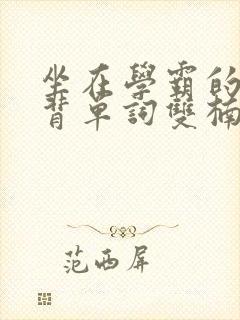 坐在學霸的
背單詞雙楠
范西屏